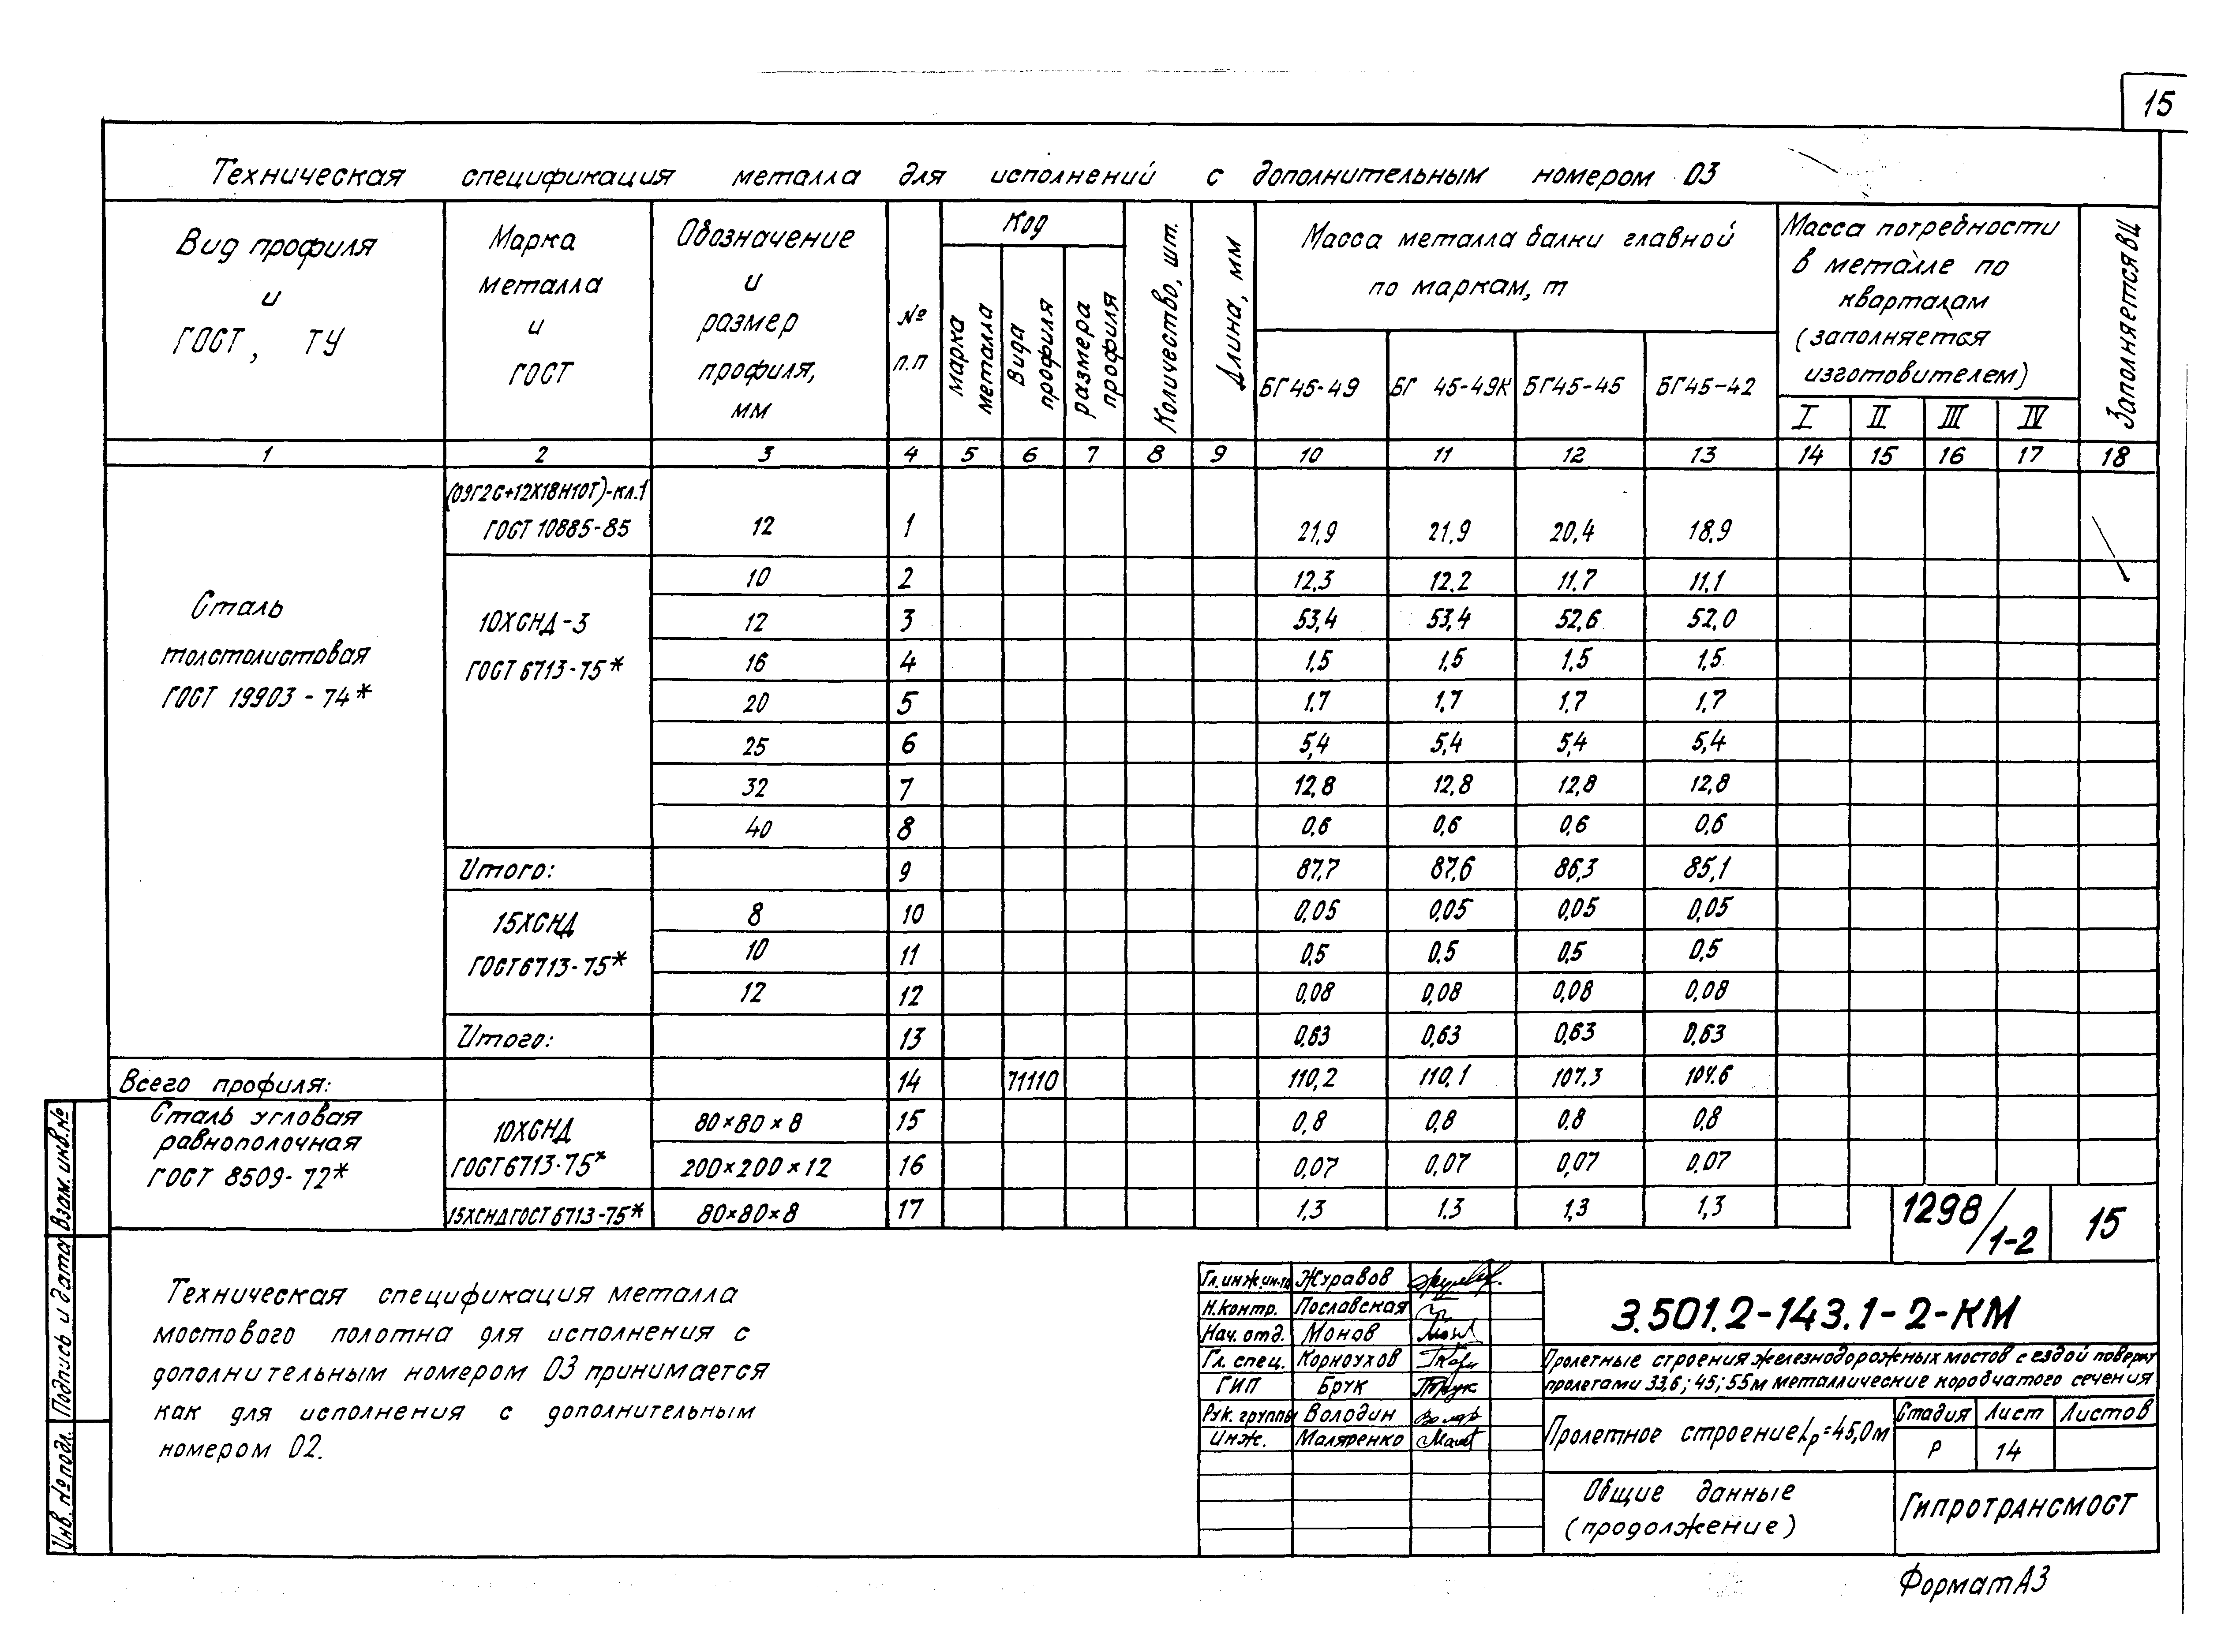 15
Техническая спецификация металла для исполнений с дополнительным номером 03
Вид профиля и ГОСТ, ТУ
Марка металла и ГОСТ
Обозначение и размер профиля, мм
№ п.п
Код
марка металла
вида профиля
размера профиля
Количество, шт.
Длина, мм
Масса металла балки главной по маркам, т
БГ45-49 БГ 45-49К БГ45-45 БГ45-42
Масса потребности в металле по кварталам (заполняется изготовителем)
I II III IV
Заполняется ВЦ
1 2 3 4 5 6 7 8 9 10 11 12 13 14 15 16 17 18
Сталь толстолистовая ГОСТ 19903-74*
(09Г2С+12Х18Н10Т)-кл.1
ГОСТ 10885-85 12 1 21,9 21,9 20,4 18,9
10ХСНД-3
ГОСТ 6713-75*
10 2 12,3 12,2 11,7 11,1
12 3 53,4 53,4 52,6 52,0
16 4 1,5 1,5 1,5 1,5
20 5 1,7 1,7 1,7 1,7
25 6 5,4 5,4 5,4 5,4
32 7 12,8 12,8 12,8 12,8
40 8 0,6 0,6 0,6 0,6
Итого: 9 87,7 87,6 86,3 85,1
15ХСНД
ГОСТ 6713-75*
8 10 0,05 0,05 0,05 0,05
10 11 0,5 0,5 0,5 0,5
12 12 0,08 0,08 0,08 0,08
Итого: 13 0,63 0,63 0,63 0,63
Всего профиля: 14 71110 110,2 110,1 107,3 104,6
Сталь угловая
равнополочная
ГОСТ 8509-72*
10ХСНД
ГОСТ 6713-75*
80×80×8 15 0,8 0,8 0,8 0,8
200×200×12 16 0,07 0,07 0,07 0,07
15ХСНД ГОСТ 6713-75* 80×80×8 17 1,3 1,3 1,3 1,3
1298/1-2 15
Техническая спецификация металла
мостового полотна для исполнения с
дополнительным номером 03 принимается
как для исполнения с дополнительным
номером 02.
Гл.инж.ин-та Журавов
Н.контр. Пославская
Нач. отд. Монов
Гл. спец. Корноухов
ГИП Брук
Рук. группы Володин
Инж. Маляренко
3.501.2-143.1-2-КМ
Пролетные строения железнодорожных мостов с ездой поверху
пролетами 33,6; 45; 55м металлические коробчатого сечения
Пролетное строение Lр=45,0м
Стадия Лист Листов
Р 14
Общие данные
(продолжение)
Гипротрансмост
Формат А3
Взам. инв.№
Подпись и дата
Инв. № подл.